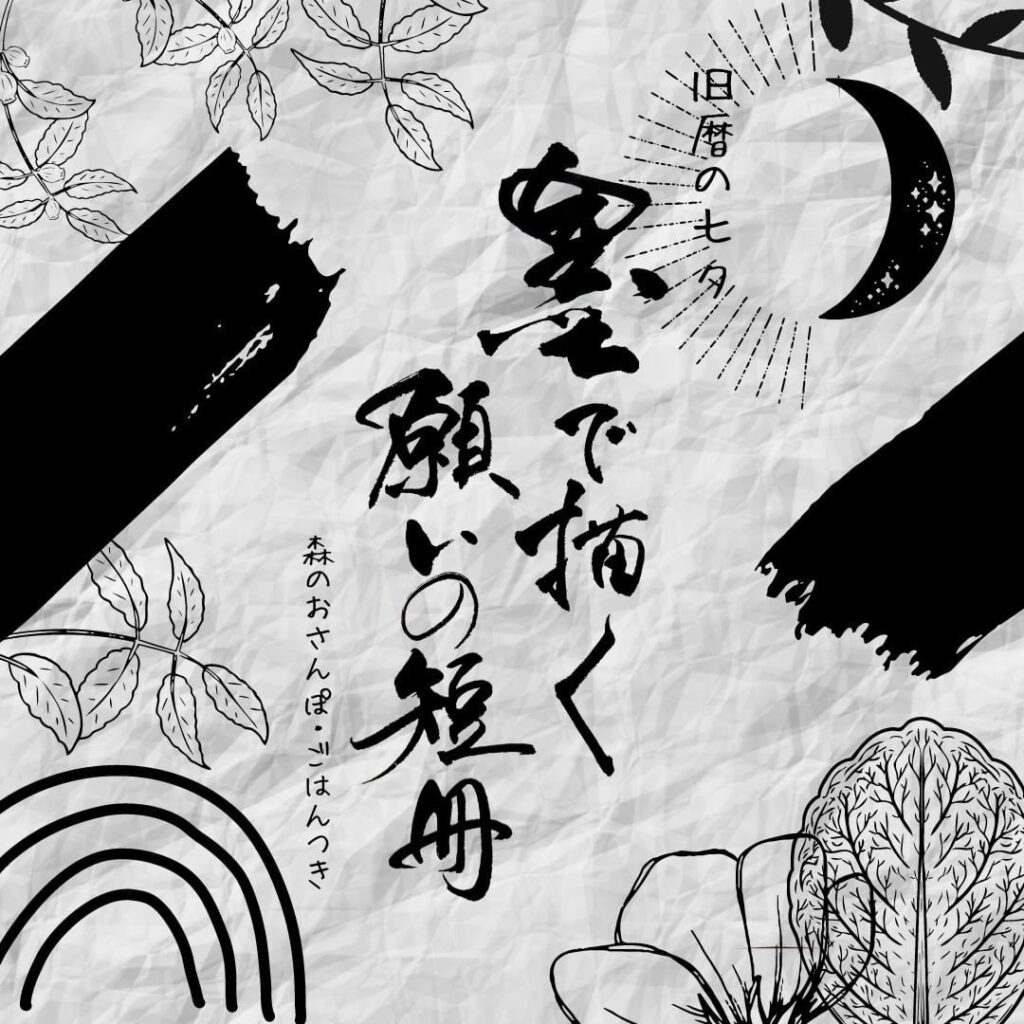 旧暦の七夕
墨で描く
願いの短冊
森のおさんぽ・ごはんつき